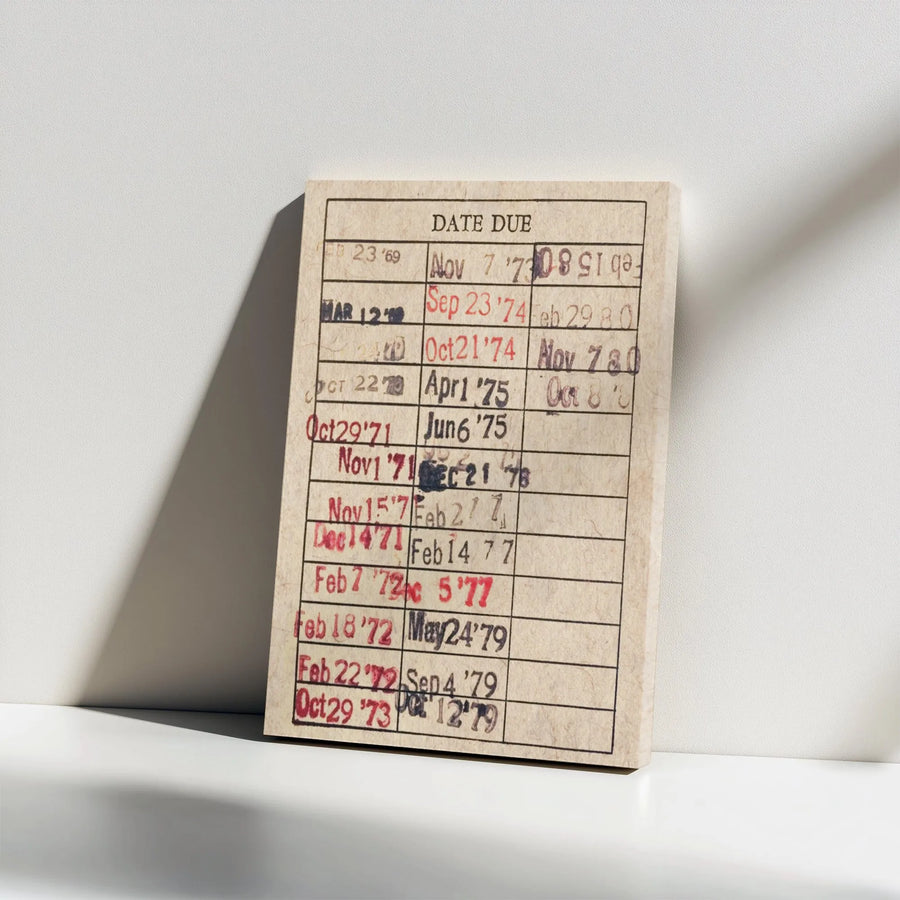 DATE DUE
23 '69
MAR 12 '70
OCT 22 '70
Oct29'71
Nov1'71
Nov15'7
Dec14'71
Feb7 '72
Feb18'72
Feb22'72
Oct29 '73
Nov 7 '73
Sep23'74
Oct21'74
Apr1 '75
Jun6 '75
DEC 21 '76
Feb 2 7 7
Feb14 77
5'77
May24'79
Sep4 '79
Oct 12'79
Feb 15 80
eb 29 80
Nov 7 80
Oct 8 '8